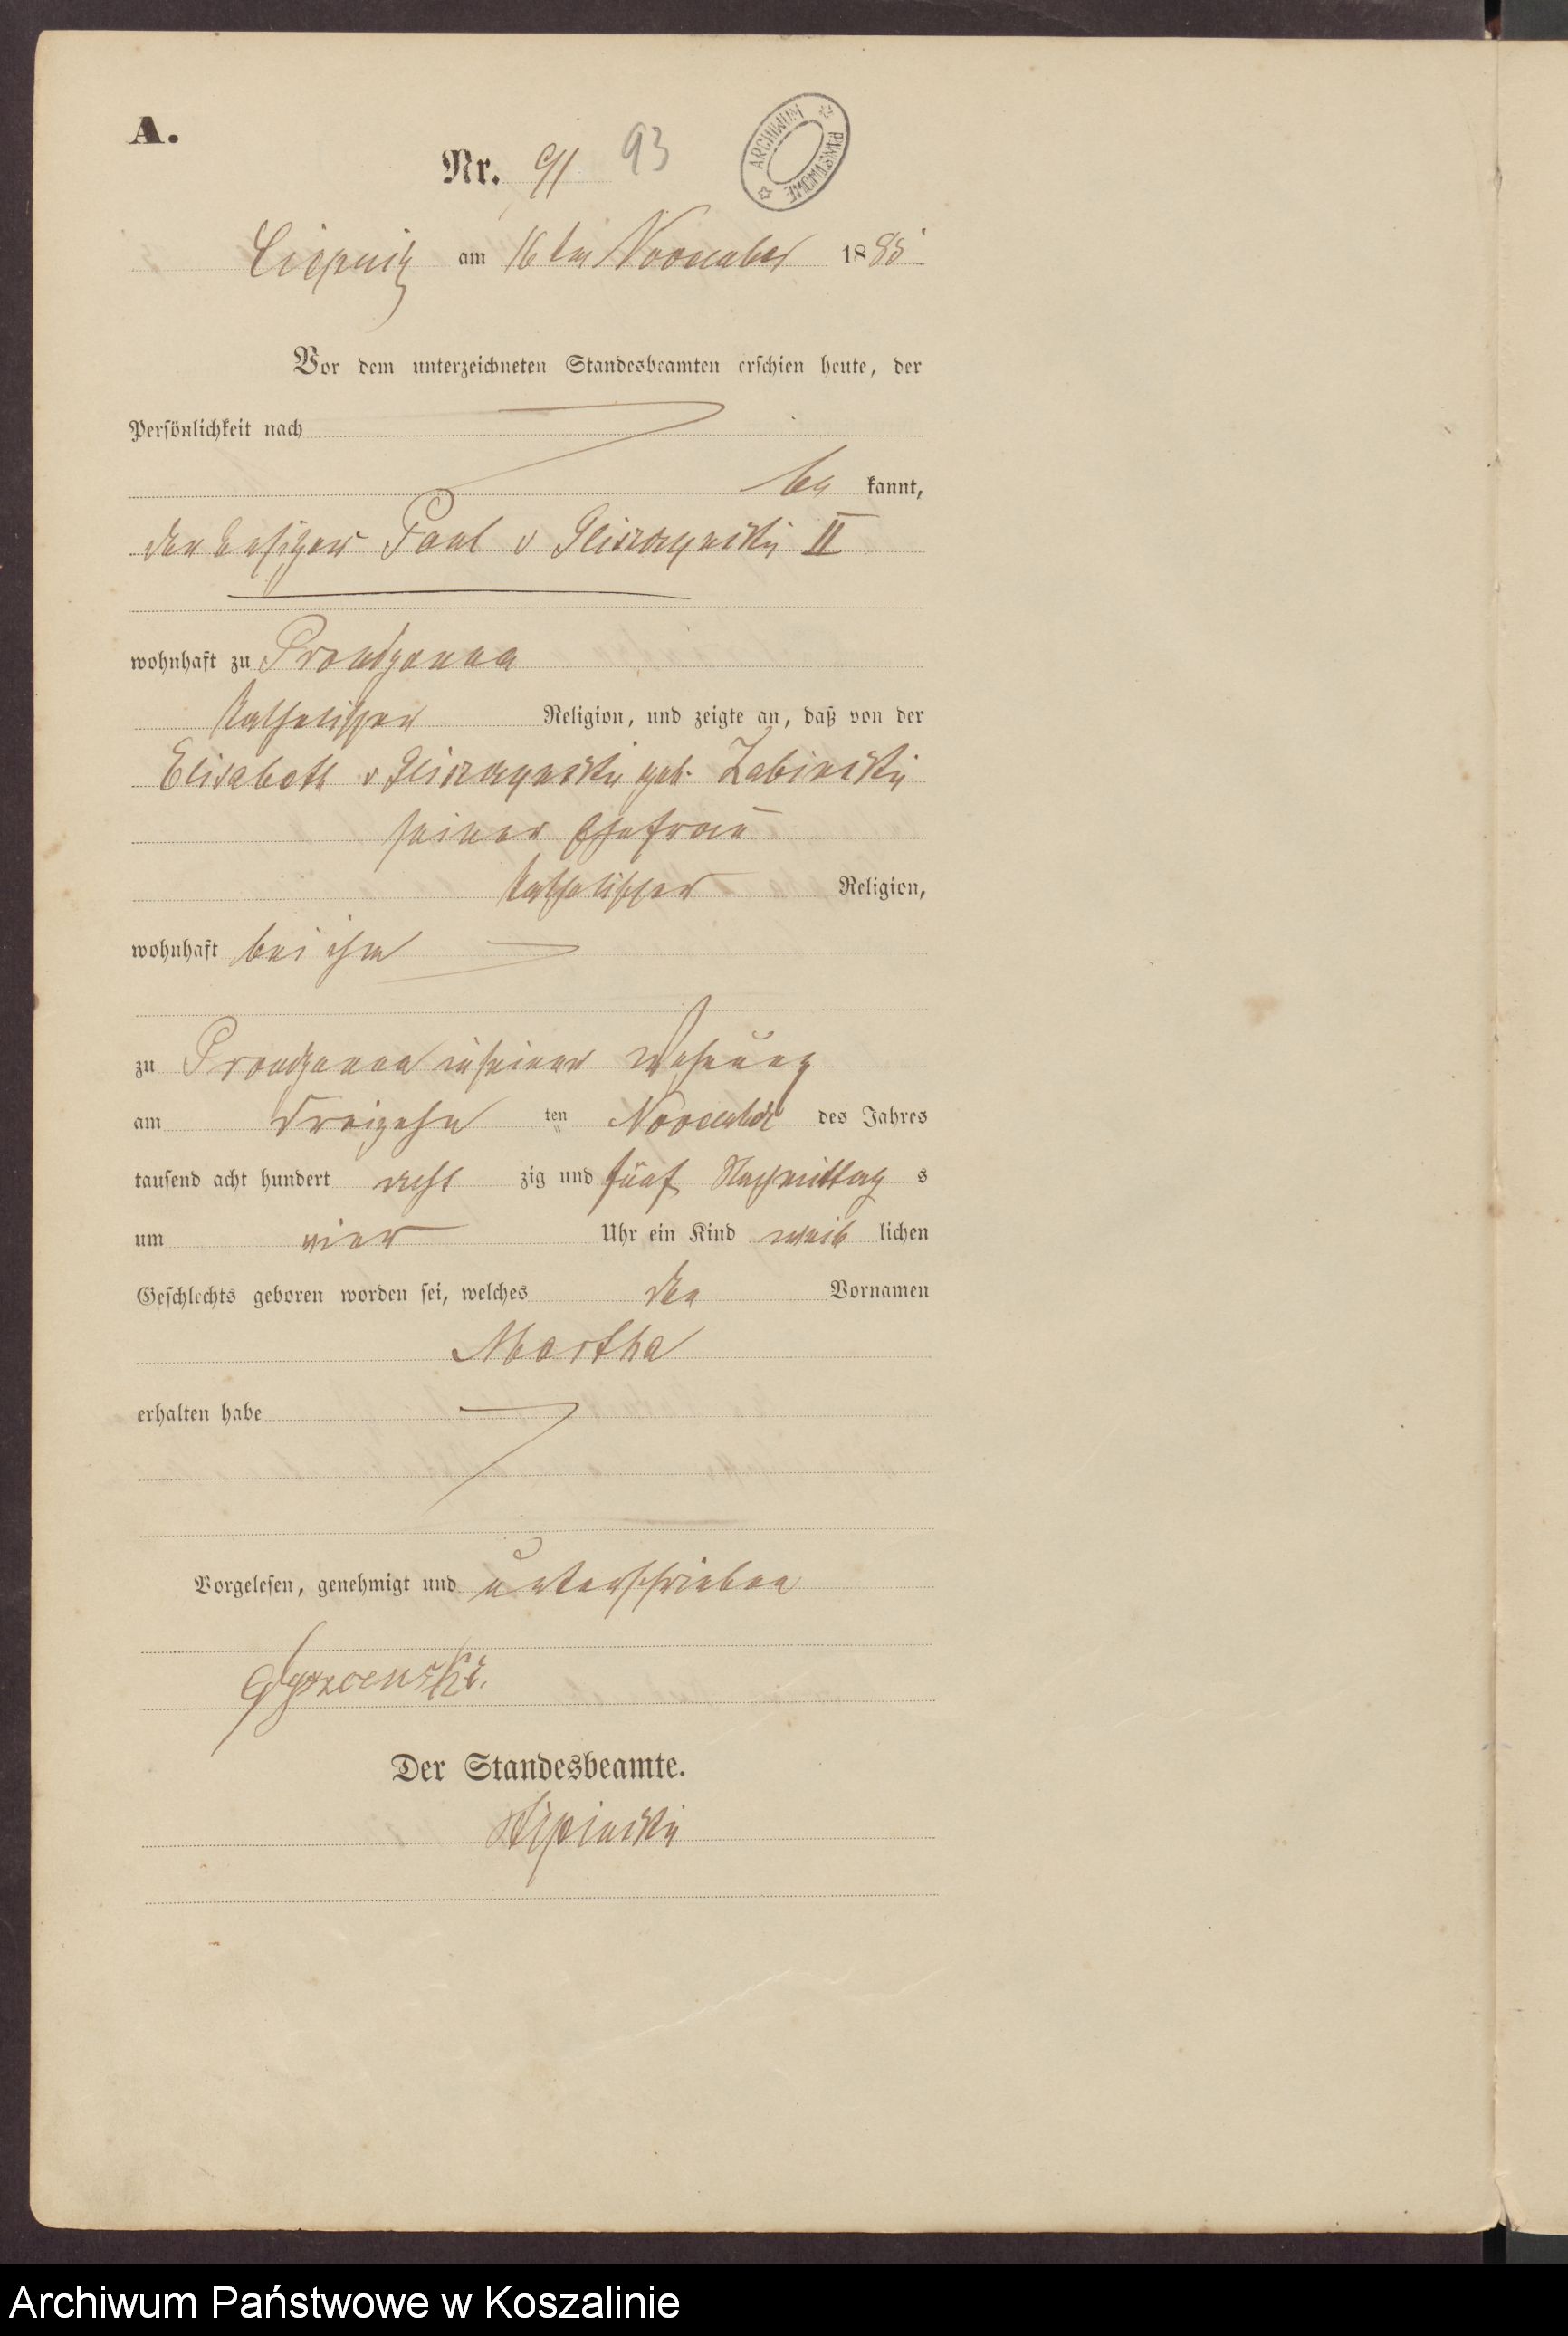 A.
Nr. 91 93
ARCHIWUM PAŃSTWOWE
Liepnitz am 16ten November 1885
Vor dem unterzeichneten Standesbeamten erschien heute, der
Persönlichkeit nach
be kannt,
der Besitzer Paul v II
wohnhaft zu Prondzonna
katholischer Religion, und zeigte an, daß von der
Elisabeth v geb.
seiner Ehefrau
katholischer Religion,
wohnhaft bei ihm
zu Prondzonna in seiner Wohnung
am dreizehn ten November des Jahres
tausend acht hundert acht zig und fünf Nachmittag s
um vier Uhr ein Kind weib lichen
Geschlechts geboren worden sei, welches den Vornamen
Martha
erhalten habe
Vorgelesen, genehmigt und unterschrieben
Der Standesbeamte.
Archiwum Państwowe w Koszalinie